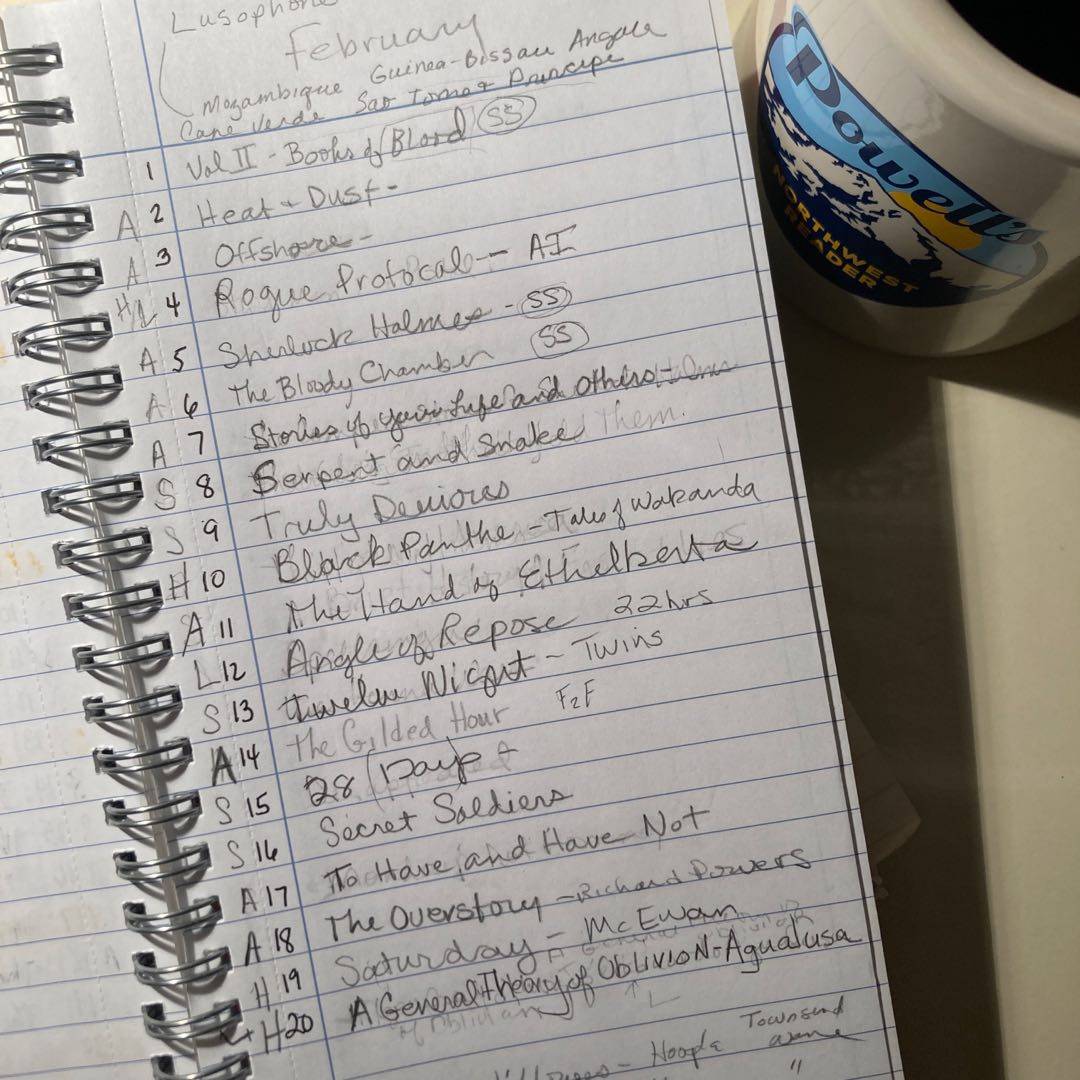 Lusophone
February
Mozambique Guinea-Bissau Angola
Cape Verde Sao Tome + Principe
1 Vol II - Books of Blood SS
A 2 Heat + Dust -
A 3 Offshore -
H/L 4 Rogue Protocal - AI
A 5 Sherlock Holmes - SS
A 6 The Bloody Chamber SS
A 7 Stories of your Life and Others -
S 8 Serpent and Snake them.
S 9 Truly Devious
H 10 Black Panthe - Tales of Wakanda
A 11 The Hand of Ethelberta
L 12 Angle of Repose 22 hrs
S 13 Twelve Night - Twins
A 14 The Gilded Hour F2F
S 15 28 Days
S 16 Secret Soldiers
A 17 To Have and Have Not
A 18 The Overstory - Richard Powers
H 19 Saturday - McEwan
H 20 A General Theory of Oblivion - Agualusa
L
of Oblivian
Hoopla Townsend
"
Powell's
NORTHWEST
READER